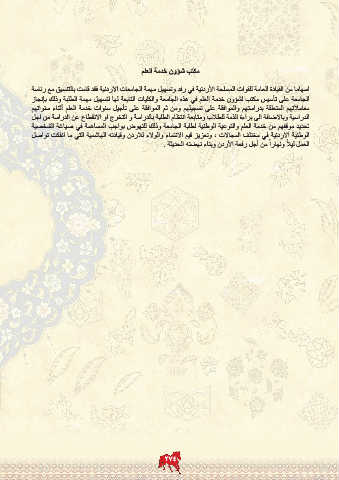 مكتب شؤون خدمة العلم
اسهاما من القيادة العامة للقوات المسلحة الأردنية في رفد وتسهيل مهمة الجامعات الأردنية فقد قامت بالتنسيق مع رئاسة
الجامعة على تأسيس مكتب لشؤون خدمة العلم في هذه الجامعة والكليات التابعة لها لتسهيل مهمة الطلبة وذلك بإنجاز
معاملاتهم المتعلقة بدراستهم والموافقة على تسجيلهم ومن ثم الموافقة على تأجيل سنوات خدمة العلم أثناء سنواتهم
الدراسية وبالاضافة الى براءة الذمة للطلاب ومتابعة انتظام الطلبة بالدراسة او التخرج او الانقطاع عن الدراسة من اجل
تحديد موقفهم من خدمة العلم والتوعية الوطنية لطلبة الجامعة وذلك للنهوض بواجب المساهمة في صياغة الشخصية
الوطنية الاردنية في مختلف المجالات ، وتعزيز قيم الانتماء والولاء للاردن وقيادته الهاشمية التي ما انفكت تواصل
العمل ليلاً ونهاراً من أجل رفعة الأردن وبناء نهضته الحديثة .
٢٧٤